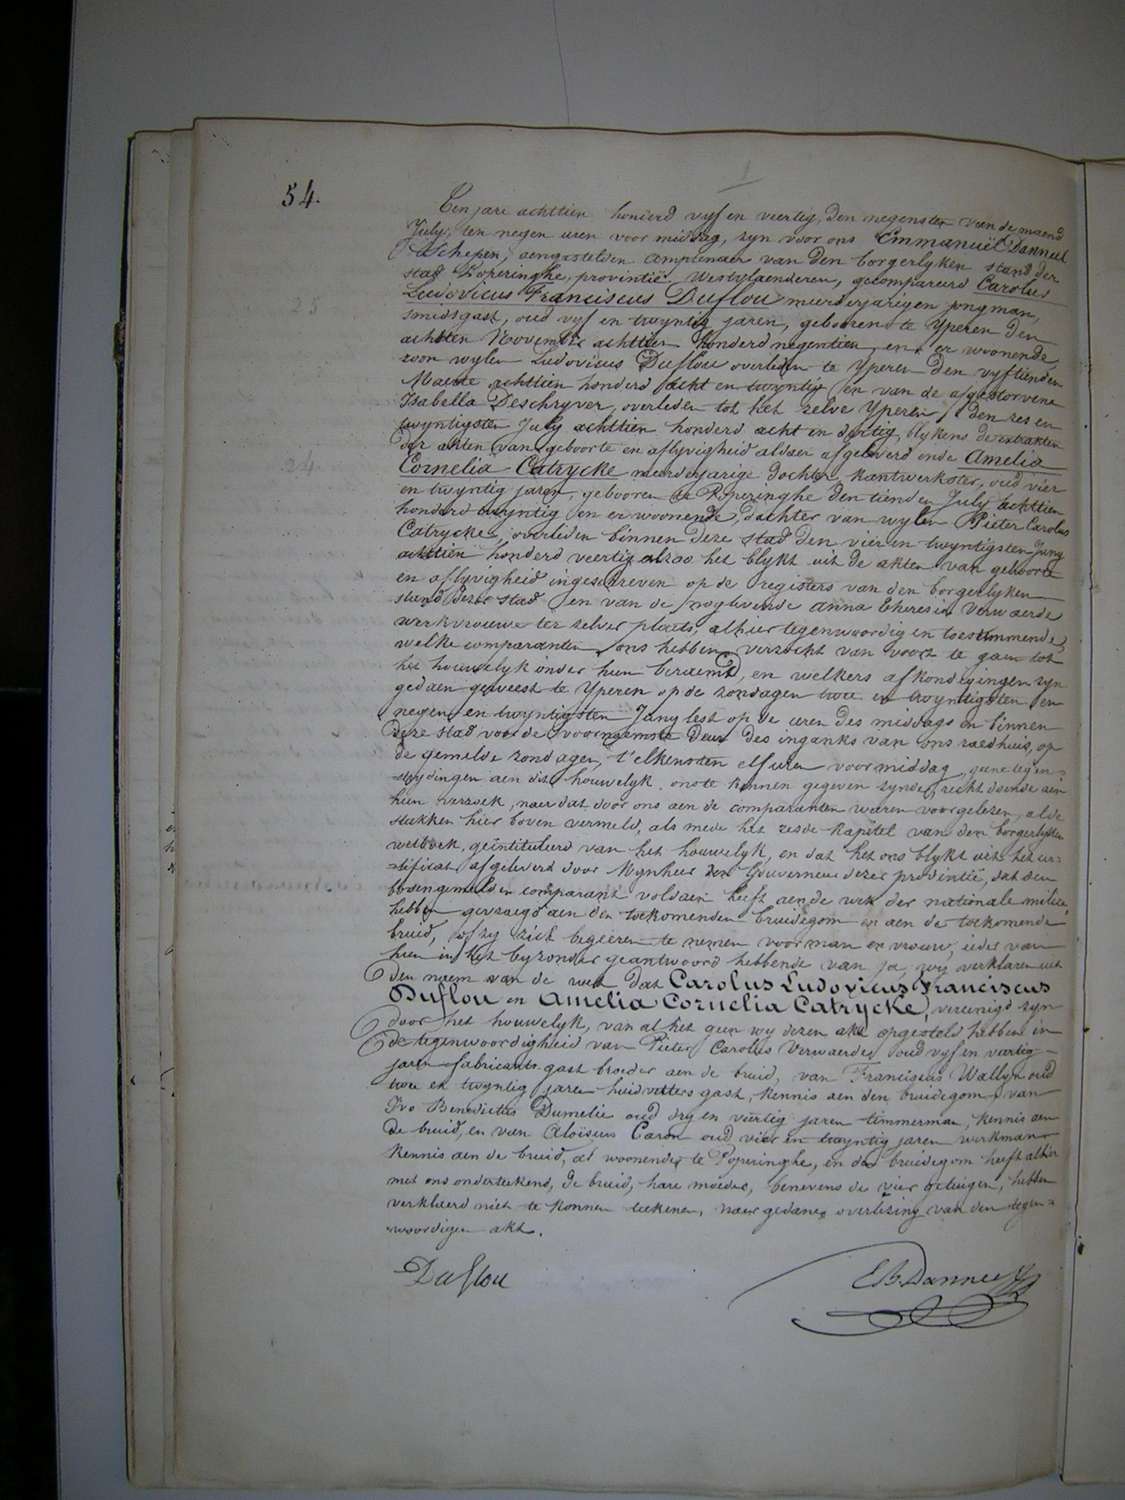 54.
Ten jare achttien honderd vyf en veertig, den negensten van de maend
July, ten negen uren voor middag, zyn voor ons Emmanuël Danneel
Schepen, aengestelden amptenaer van den borgerlyken stand der
stad Poperinghe, provintië Westvlaenderen, gecompareerd Carolus
Ludovicus Franciscus Duflou meerderjarigen jongman,
smidsgast, oud vyf en twyntig jaren, gebooren te Yperen den
achtsten November achttien honderd negentien, en er woonende,
zoon wylen Ludovicus Duflou overleden te Yperen den vyftienden
Maerte achttien honderd acht en twyntig en van de afgestorvene
Isabella Deschryver, overleden tot het zelve Yperen, den zes en
twyntigsten July achttien honderd acht en dertig, blykens de extrakten
der akten van geboorte en aflyvigheid aldaer afgeleverd, ende Amelia
Cornelia Catrycke meerderjarige dochter, kantwerkster, oud vier
en twyntig jaren, gebooren te Poperinghe den tienden July achttien
honderd twyntig en er woonende, dochter van wylen Pieter Carolus
Catrycke, overleden binnen deze stad den vier en twyntigsten Juny
achttien honderd veertig alzoo het blykt uit de akten van geboorte
en aflyvigheid ingeschreven op de registers van den borgerlyken
stand dezer stad en van de nog levende Anna Theresia Verwaerde
werkvrouwe ter zelver plaets, alhier tegenwoordig en toestemmende,
welke comparanten ons hebben verzocht van voort te gaen tot
het houwelyk onder hun beraemd, en welkers afkondigingen zyn
gedaen geweest te Yperen op de zondagen twee en twyntigsten en
negen en twyntigsten Juny lest op de uren des middags en binnen
deze stad voor de voornaemste deur des ingangs van ons raedhuis, op
de gemelde zondagen, t'elkensten elf uren voormiddag, geene tegen-
-stydingen aen dit houwelyk onste kennen gegeven zynde, recht doende aen
hun verzoek, naer dat door ons aen de comparanten waren voorgelezen, al de
stukken hier boven vermeld, als mede het zesde kapitel van den borgerlyken
wetboek, geïntituleerd van het houwelyk, en dat het ons blykt uit het cer-
-tificaet afgeleverd door Mynheer den Gouverneur dezer provintië, dat den
bovengemelden comparant voldaen heeft aen de wet der nationale milicie,
hebben gevraegd aen den toekomenden bruidegom en aen de toekomende
bruid, of zy zich begeeren te nemen voor man en vrouw, ieder van
hun in het byzonder geantwoord hebbende van ja, wy verklaren uit
den naem van de wet dat Carolus Ludovicus Franciscus
Duflou en Amelia Cornelia Catrycke, vereenigd zyn
door het houwelyk, van al het geen wy dezen akt opgesteld hebben in
de tegenwoordigheid van Pieter Carolus Verwaerde, oud vyf en veertig
jaren fabricants gast broeder aen de bruid, van Franciscus Wallyn oud
twee en twyntig jaren huidvetters gast, kennis aen den bruidegom, van
Ivo Benedictus Dumelie oud dry en veertig jaren timmerman, kennis aen
de bruid, en van Aloïsius Caron oud vier en twyntig jaren werkman
kennis aen de bruid, al woonende te Poperinghe, en den bruidegom heeft alhier
met ons onderteekend, de bruid, hare moeder, benevens de vier getuigen, hebben
verklaerd niet te konnen teekenen, naer gedane overlezing van den tegen-
-woordigen akt.
Duflou
E B Danneel